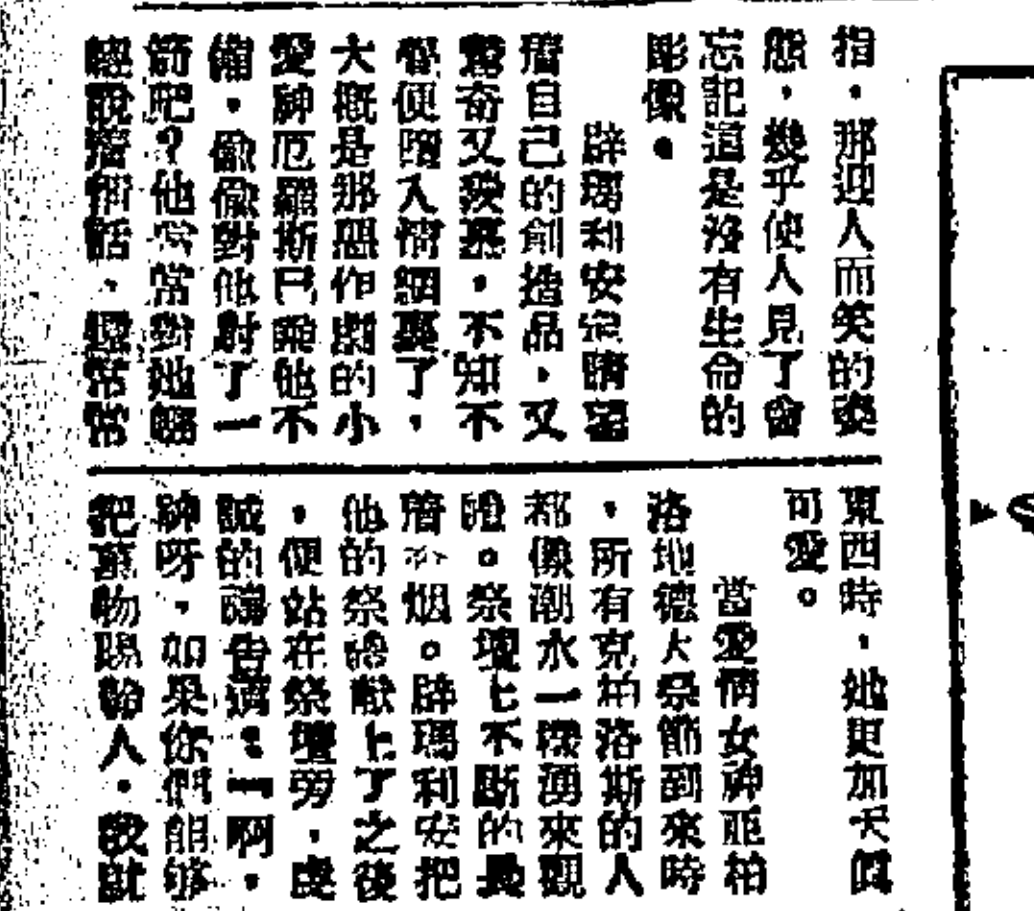 指，那迎人而笑的姿
態，幾乎使人見了會
忘記這是沒有生命的
彫像。
辟瑪利安定睛望
着自己的創造品，又
驚奇又羨慕，不知不
覺便墮入情網裏了，
大概是那惡作劇的小
愛神厄羅斯已乘他不
備，偷偷對他射了一
箭吧？他常常對她
總說着情話，還常常
東西時，她更加天眞
可愛。
當愛情女神亞柏
洛地德大祭節到來時
，所有克柏洛斯的人
都像潮水一樣湧來觀
禮。祭壇上不斷的
着香烟。辟瑪利安把
他的祭禮獻上了之後
，便站在祭壇旁，虔
誠的禱告道：「啊，
神呀，如果你們能够
把萬物賜給人，我就